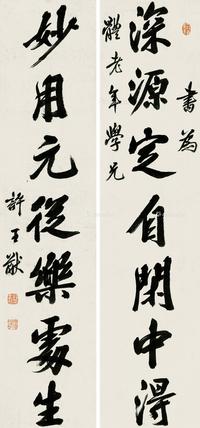 深源定自閉中得
書為
體老年學兄
妙用元從樂處生
許王猷